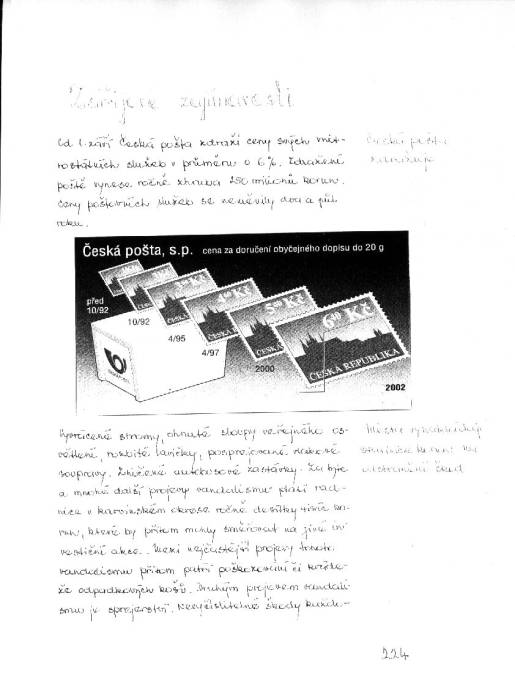 Zářijové zajímavosti
Od 1. září Česká pošta zdraží ceny svých vnit-
rostátních služeb v průměru o 6%. Zdražení
poště vynese ročně zhruba 250 milionů korun.
Ceny poštovních služeb se neměnily dva a půl
roku.
Česká pošta
zdražuje
Česká pošta, s.p. cena za doručení obyčejného dopisu do 20 g
před
10/92
10/92
4/95
4/97
2000
2002
3⁰⁰ Kč
4⁶⁰ Kč
5⁴⁰ Kč
6⁴⁰ Kč
ČESKÁ
ČESKÁ
ČESKÁ REPUBLIKA
Vyvrácené stromy, ohnuté sloupy veřejného os-
větlení, rozbité lavičky, posprejované
soupravy. Zničené autobusové zastávky. Za tyto
a mnohé další projevy vandalismu platí rad-
nice v karvinském okrese ročně desítky tisíc ko-
run, které by přitom mohly směřovat na jiné in-
vestiční akce. Mezi nejčastější projevy tohoto
vandalismu přitom patří poškozování či kráde-
že odpadkových košů. Druhým projevem vandali-
smu je sprejerství. Nevyčíslitelné škody
Města vynakládají
statisíce korun na
odstranění škod
224